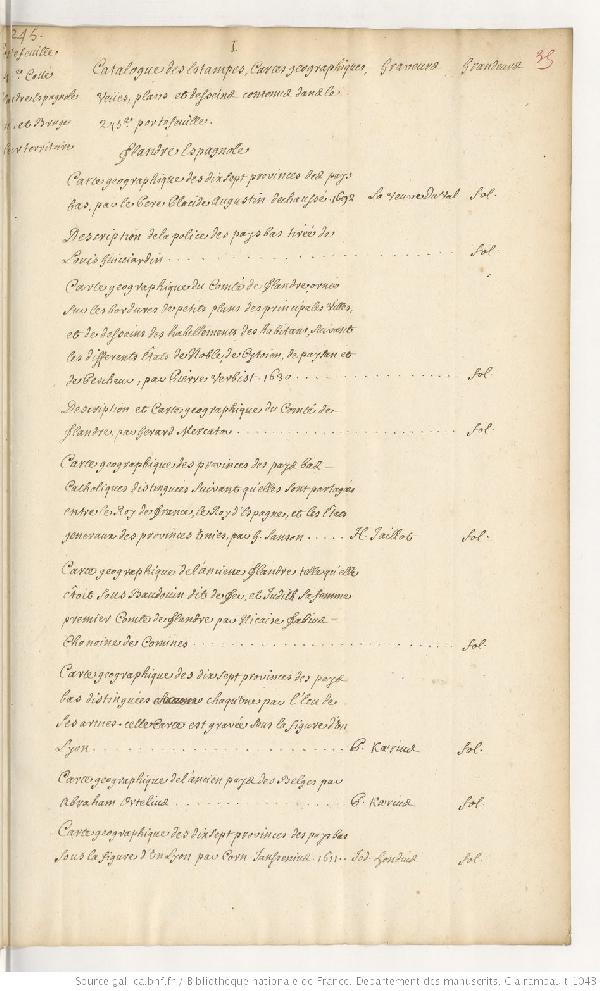 245.
I.
35
Catalogue des Estampes, Cartes geographiques, Graveurs Grandeurs
veües, plans et desseins contenus dans le
245.e portefeuille.
et Bruges
territoire
flandre Espagnole
Carte geographique des dixsept provinces des pays
bas, par le Pere Placide Augustin dechaussé. 1692 La veuve Du Val fol.
Description de la police des pays bas tirée de
Louis Guicciardin fol
Carte geographique du Comté de flandre ornée
sur les bordures de petits plans des principales villes,
et de desseins des habillements des habitans, suivant
les differents Etats de Noble, de Cytoien, de paysan et
de Pescheur, par Pierre Verbist. 1630 fol.
Description et Carte geographique du Comté de
flandre par Gerard Mercator fol.
Carte geographique des provinces des pays bas
Catholiques distinguées suivant qu'elles sont partagées
entre le Roy de france, le Roy d'Espagne, et les Etats
generaux des provinces Unies, par G. Sanson H. Jaillot fol.
Carte geographique de l'ancienne flandre telle qu'elle
étoit sous Baudouin dit de fer, et Judith sa femme
premier Comte de flandre par Nicaise fabius
Chanoine de Comines fol.
Carte geographique des dix sept provinces des pays
bas distinguées chaqu'une par l'Ecu de
ses armes. cette Carte est gravée sous la figure d'un
Lyon P. Kærius fol.
Carte geographique de l'ancien pays des Belges par
Abraham Ortelius P. Kærius fol.
Carte geographique des dixsept provinces des pays bas
sous la figure d'Un Lyon par Corn. Janssonius. 1611 Jod. Hondius fol.
Source gallica.bnf.fr / Bibliothèque nationale de France. Département des manuscrits. Clairambault 1048